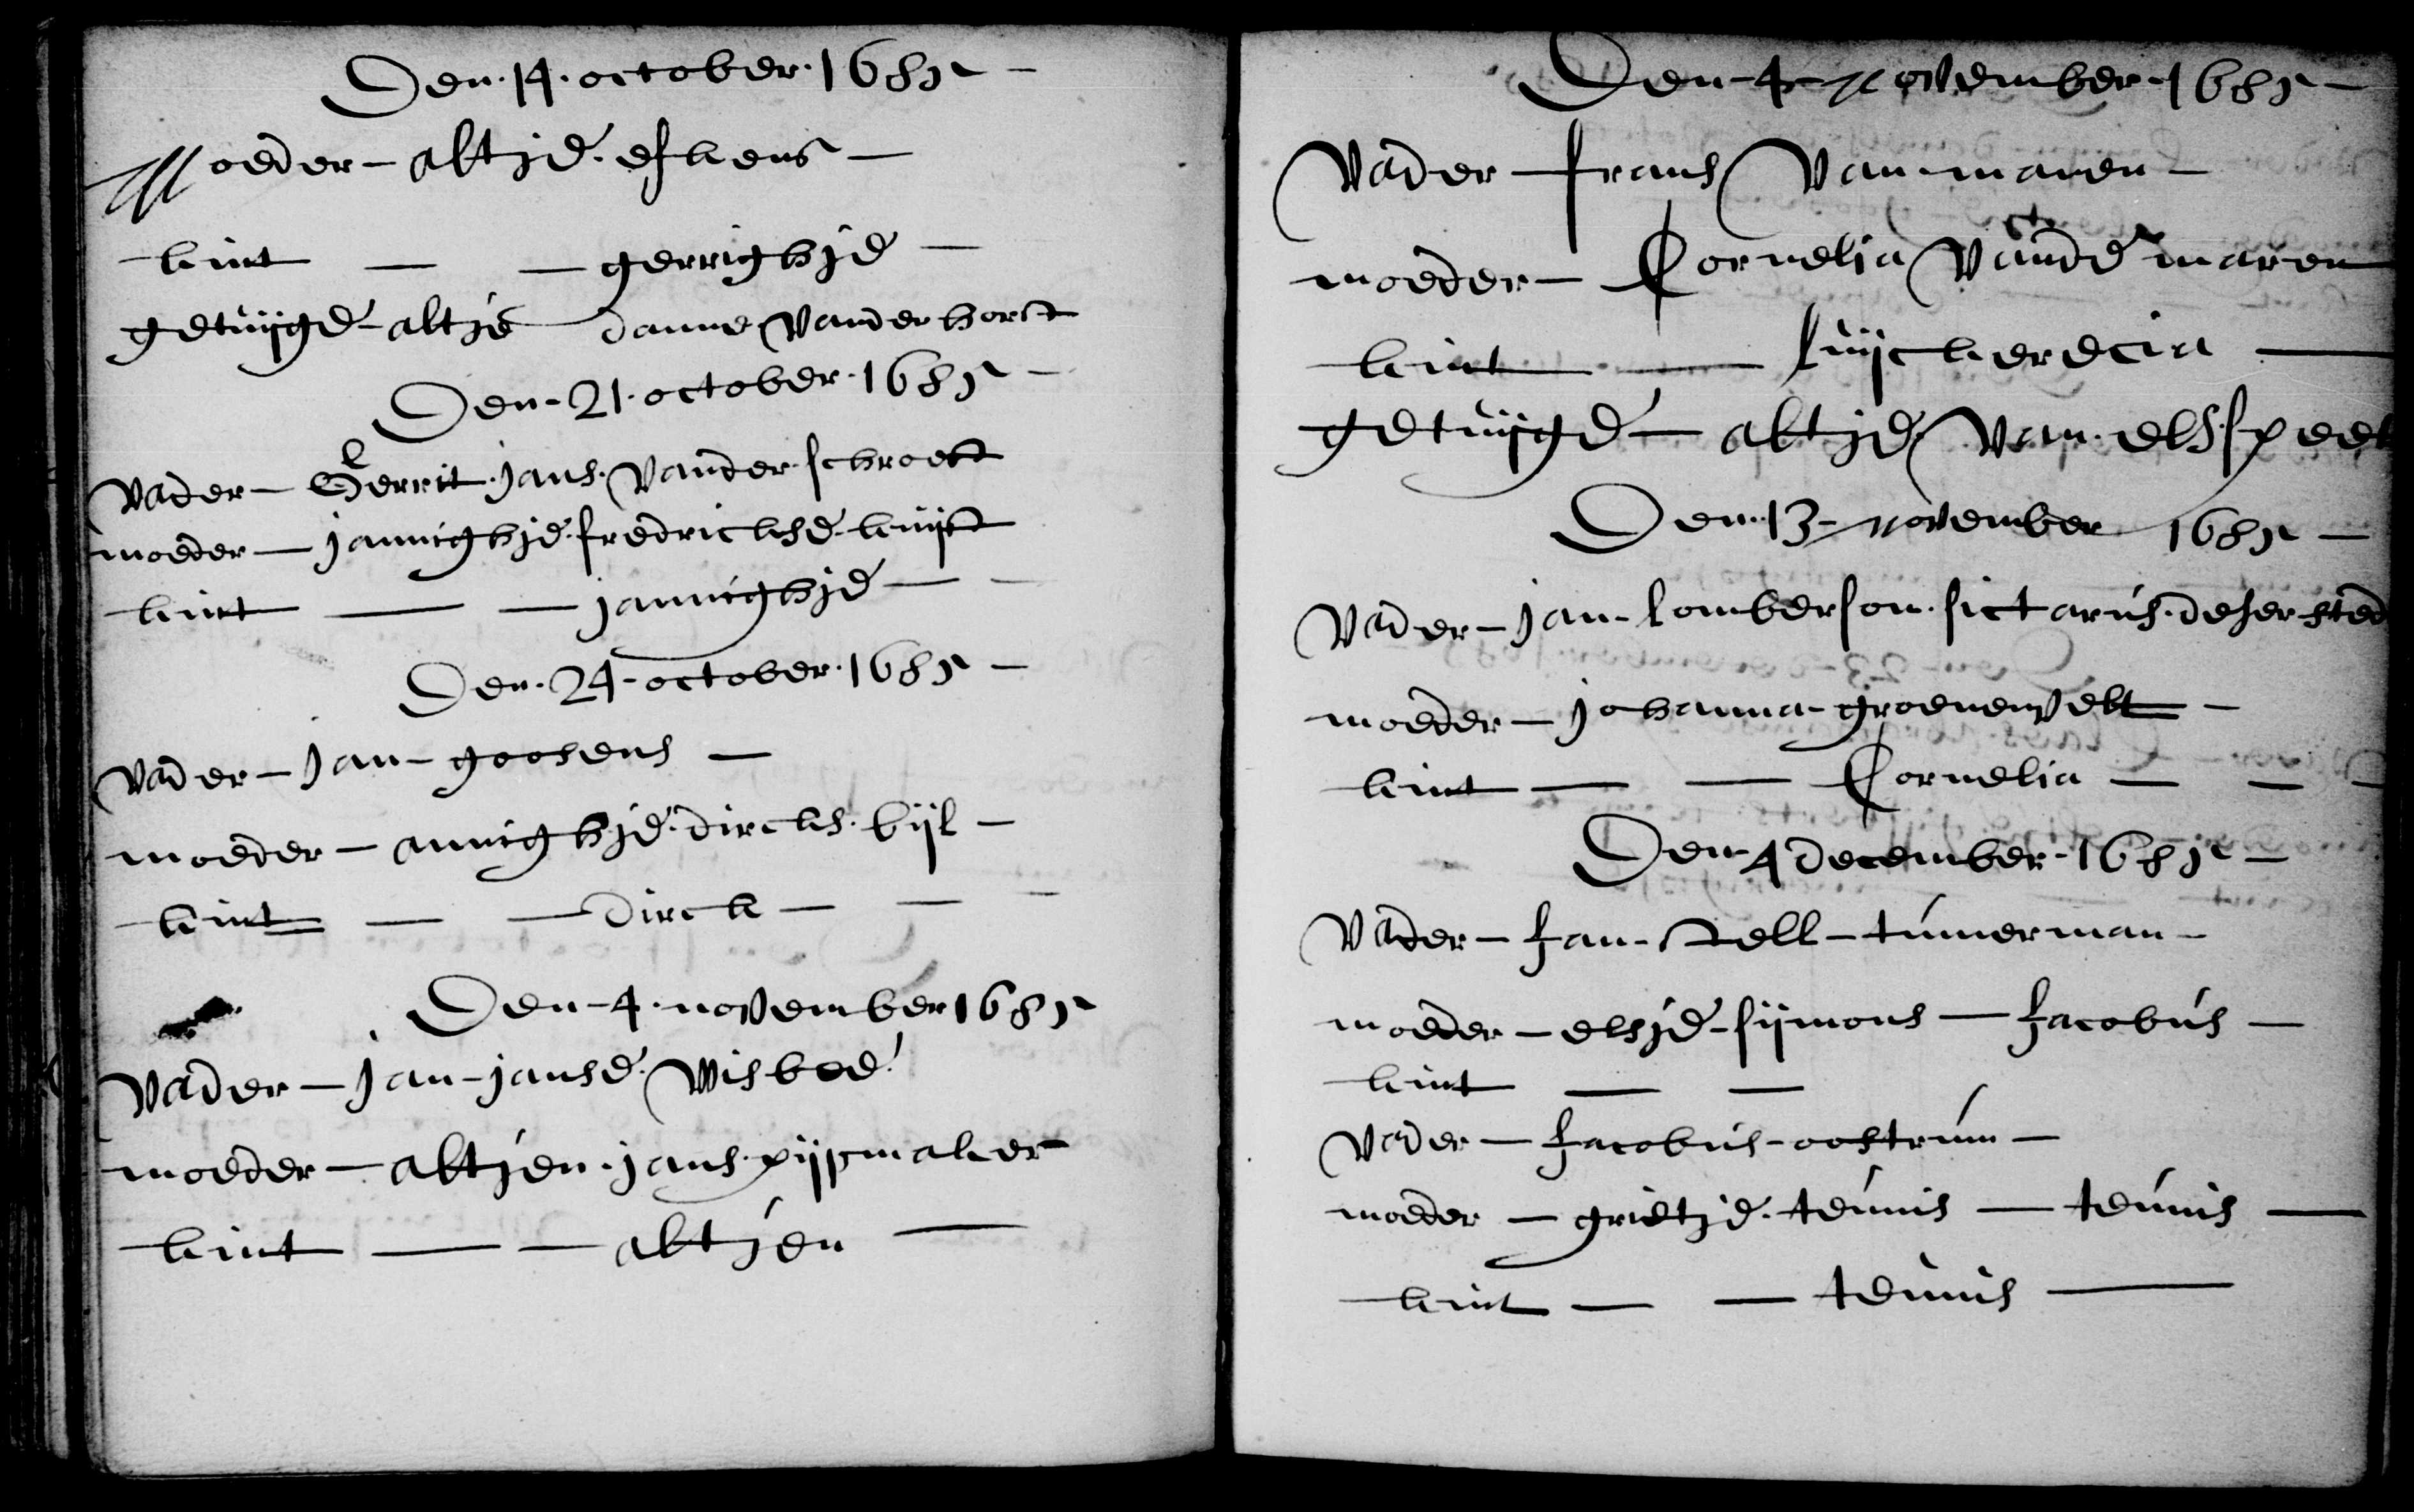 Den 14 october 1681 —
Moeder — altje efkens —
kint — — gerrighje —
getuijge — altje danne vander horst
Den 21 october 1681 —
Vader — Gerrit jans vander schroeft
moeder — jannighje fredrickse kuijst
kint — — jannighje —
Den 24 october 1681 —
Vader — jan — goosens —
moeder — annighje dircks bijl —
kint — — dirck — — —
Den 4 november 1681
Vader — jan — janse wisboe
moeder — altjen jans pijpmaker
kint — — altjen —
Den — 4 — november — 1681 —
Vader — frans van maren —
moeder — Cornelia vande maren
kint — — luijckerecia —
getuijge — altje van elsspeet
Den 13 — november 1681 —
Vader — jan — lomberson sictarus deser sted
moeder — johanna groenenvelt —
kint — — Cornelia — — —
Den 4 december — 1681 —
Vader — Jan — Nell — timerman —
moeder — elsje — sijmons — Jacobus —
kint — —
Vader — Jacobus — oostrum —
moeder — grietje teunis — teunis —
kint — — teunis —